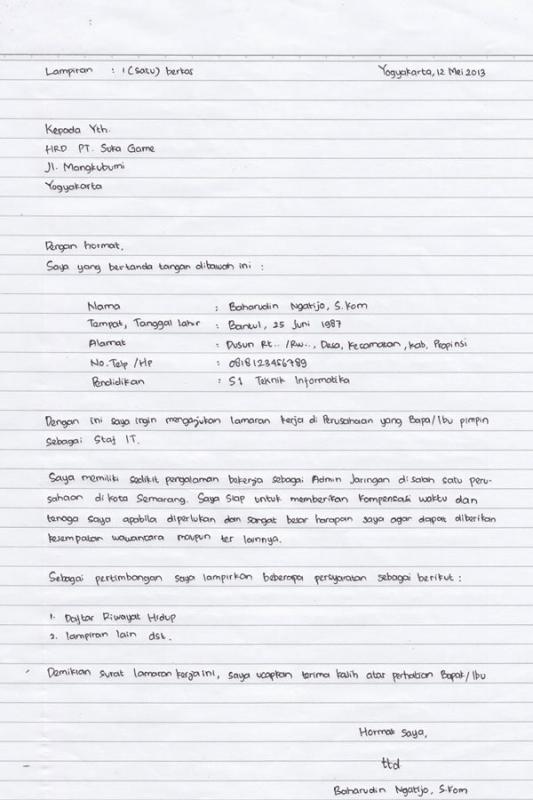 Lampiran : 1 (satu) berkas Yogyakarta, 12 Mei 2013
Kepada Yth.
HRD PT. Suka Game
Jl. Mangkubumi
Yogyakarta
Dengan hormat,
Saya yang bertanda tangan dibawah ini :
Nama : Baharudin Ngatijo, S.Kom
Tempat, Tanggal lahir : Bantul, 25 Juni 1987
Alamat : Dusun Rt.. /Rw.., Desa, Kecamatan, kab, Propinsi
No. Telp /Hp : 0818123456789
Pendidikan : S1 Teknik Informatika
Dengan ini saya ingin mengajukan lamaran kerja di Perusahaan yang Bapa/Ibu pimpin
sebagai Staf IT.
Saya memiliki sedikit pengalaman bekerja sebagai Admin Jaringan di salah satu peru-
sahaan di kota Semarang. Saya Siap untuk memberikan kompensasi waktu dan
tenaga saya apabila diperlukan dan sangat besar harapan saya agar dapat diberikan
kesempatan wawancara maupun tes lainnya.
Sebagai pertimbangan saya lampirkan beberapa persyaratan sebagai berikut :
1. Daftar Riwayat Hidup
2. lampiran lain dst.
Demikian surat lamaran kerja ini, saya ucapkan terima kasih atas perhatian Bapak/Ibu
Hormat Saya,
ttd
Baharudin Ngatijo, S.Kom